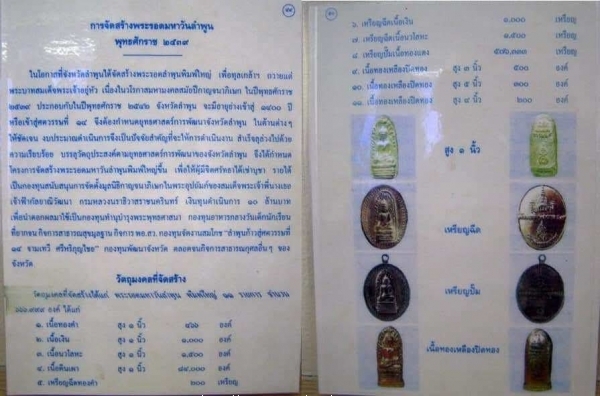 ๔๔
การจัดสร้างพระรอดมหาวันลำพูน
พุทธศักราช ๒๕๓๙
ในโอกาสที่จังหวัดลำพูนได้จัดสร้างพระรอดลำพูนพิมพ์ใหญ่ เพื่อทูลเกล้าฯ ถวายแด่
พระบาทสมเด็จพระเจ้าอยู่หัว เนื่องในวโรกาสมหามงคลสมัยปีกาญจนาภิเษก ในปีพุทธศักราช
๒๕๓๙ ประกอบกับในปีพุทธศักราช ๒๕๔๒ จังหวัดลำพูน จะมีอายุย่างเข้าสู่ ๑๔๐๐ ปี
หรือเข้าสู่ศตวรรษที่ ๑๔ จึงต้องกำหนดยุทธศาสตร์การพัฒนาจังหวัดลำพูน ในด้านต่างๆ
ให้ชัดเจน งบประมาณดำเนินการจึงเป็นปัจจัยสำคัญที่จะให้การดำเนินงาน สำเร็จลุล่วงไปด้วย
ความเรียบร้อย บรรลุวัตถุประสงค์ตามยุทธศาสตร์การพัฒนาของจังหวัดลำพูน จึงได้กำหนด
โครงการจัดสร้างพระรอดมหาวันลำพูนพิมพ์ใหญ่ขึ้น เพื่อให้ผู้มีจิตศรัทธาได้เช่าบูชา รายได้
เป็นกองทุนสนับสนุนการจัดตั้งมูลนิธิกาญจนาภิเษกในพระอุปถัมภ์ของสมเด็จพระเจ้าพี่นางเธอ
เจ้าฟ้ากัลยาณิวัฒนา กรมหลวงนราธิวาสราชนครินทร์ เงินทุนดำเนินการ ๑๐ ล้านบาท
เพื่อนำดอกผลมาใช้เป็นกองทุนทำนุบำรุงพระพุทธศาสนา กองทุนอาหารกลางวันเด็กนักเรียน
ที่ยากจน กิจการสาธารณสุขมูลฐาน กิจการ พอ.สว. กองทุนจัดงานสมโภช "ลำพูนก้าวสู่ศตวรรษที่
๑๔ จามเทวี ศรีหริภุญไชย" กองทุนพัฒนาจังหวัด ตลอดจนกิจการสาธารณกุศลอื่นๆ ของ
จังหวัด
วัตถุมงคลที่จัดสร้าง
วัตถุมงคลที่จัดสร้างได้แก่ พระรอดมหาวันลำพูน พิมพ์ใหญ่ ๑๑ รายการ จำนวน
องค์ ได้แก่
๑. เนื้อทองคำ สูง ๑ นิ้ว ๔๖๖ องค์
๒. เนื้อเงิน สูง ๑ นิ้ว ๑,๐๐๐ องค์
๓. เนื้อนวโลหะ สูง ๑ นิ้ว ๑,๕๐๐ องค์
๔. เนื้อดินเผา สูง ๑ นิ้ว ๘๔,๐๐๐ องค์
๕. เหรียญฉีดทองคำ ๒๐๐ เหรียญ
๖. เหรียญฉีดเนื้อเงิน ๑,๐๐๐ เหรียญ
๗. เหรียญฉีดเนื้อนวโลหะ ๑,๕๐๐ เหรียญ
๘. เหรียญปั๊มเนื้อทองแดง เหรียญ
๙. เนื้อทองเหลืองปิดทอง สูง ๓ นิ้ว ๕๐๐ องค์
๑๐. เนื้อทองเหลืองปิดทอง สูง ๕ นิ้ว ๓๐๐ องค์
๑๑. เนื้อทองเหลืองปิดทอง สูง ๙ นิ้ว ๒๐๐ องค์
สูง ๑ นิ้ว
เหรียญฉีด
เหรียญปั๊ม
เนื้อทองเหลืองปิดทอง